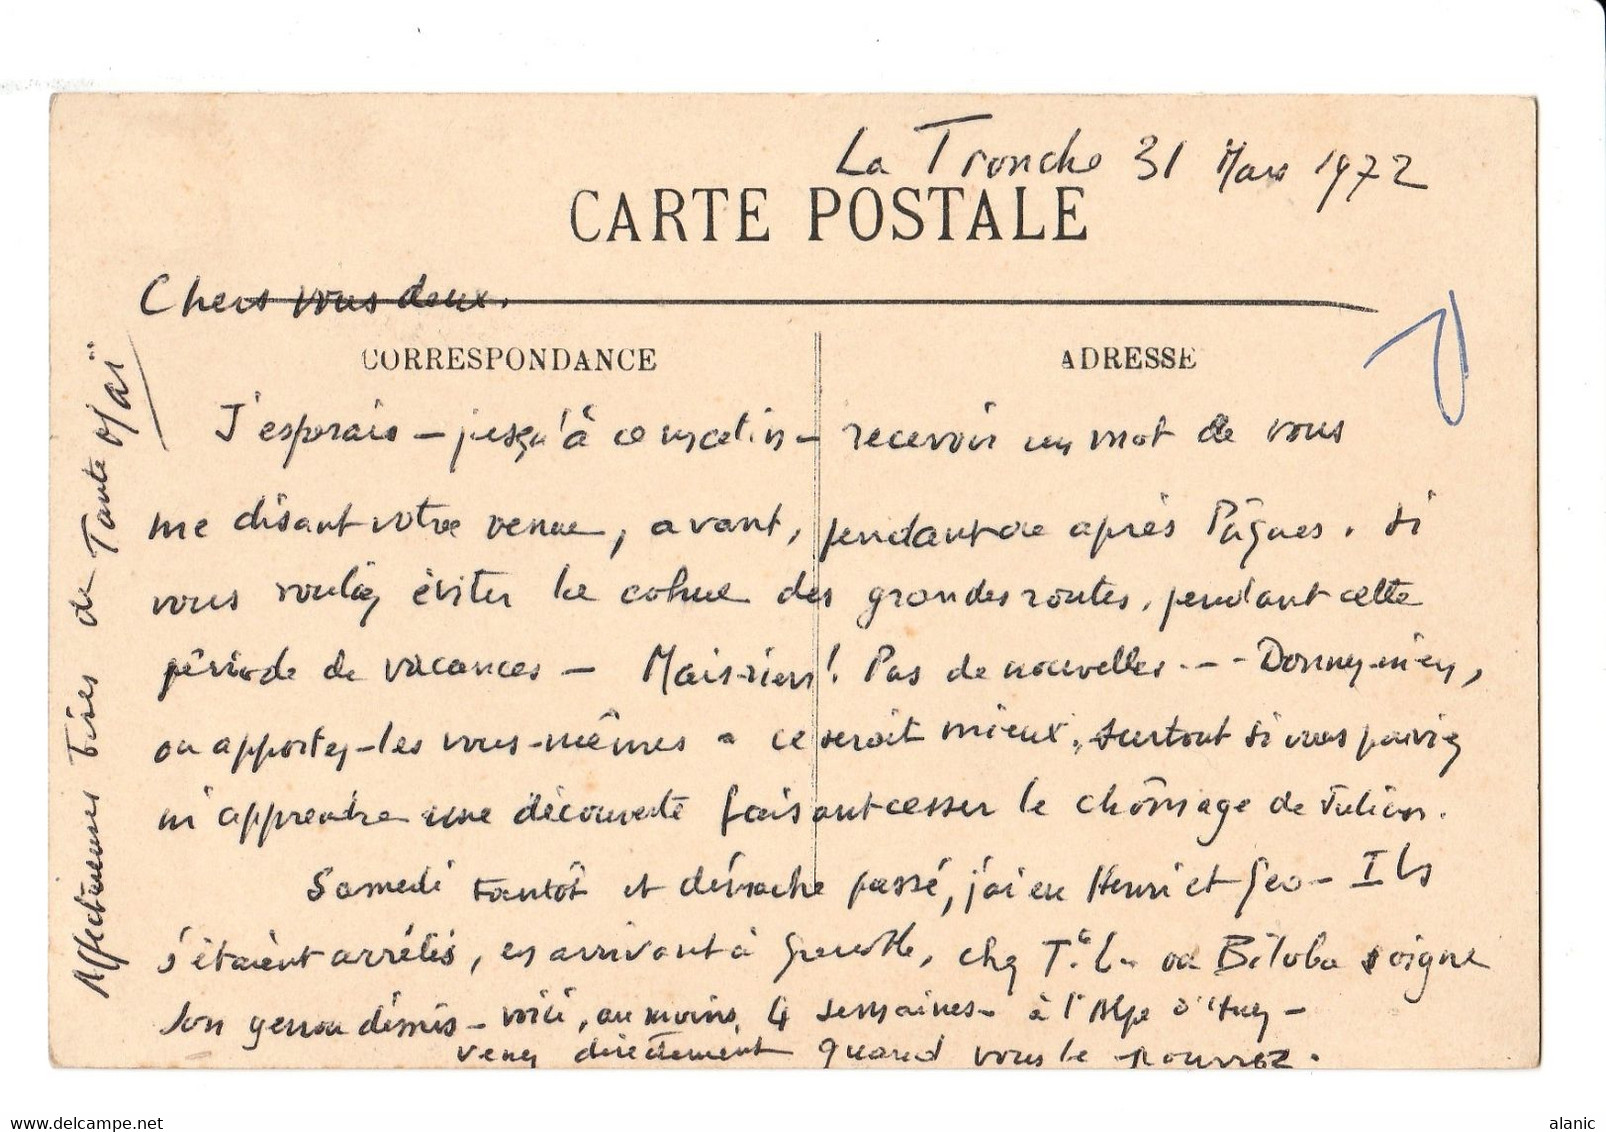 La Tronche 31 Mars 1972
CARTE POSTALE
Chers vous deux.
CORRESPONDANCE
ADRESSE
J'espérais – jusqu'à ce matin – recevoir un mot de vous
me disant votre venue, avant, pendant ou après Pâques. Si
vous vouliez éviter la cohue des grandes routes, pendant cette
période de vacances – Mais rien! Pas de nouvelles - - - Donnez-m'en,
ou apportez-les vous-mêmes - ce serait mieux, surtout si vous pouviez
m'apprendre une découverte faisant cesser le chômage de Julien.
Samedi tantôt et dimanche passé, j'ai eu Henri et Geo – Ils
s'étaient arrêtés, en arrivant à Grenoble, chez Te L. où Bitoba soigne
son genou démis – voici, au moins, 4 semaines – à l'Alpe d'Huez –
venez directement quand vous le pourrez.
Affectueuses bises de Tante Maï
delcampe.net
alanic